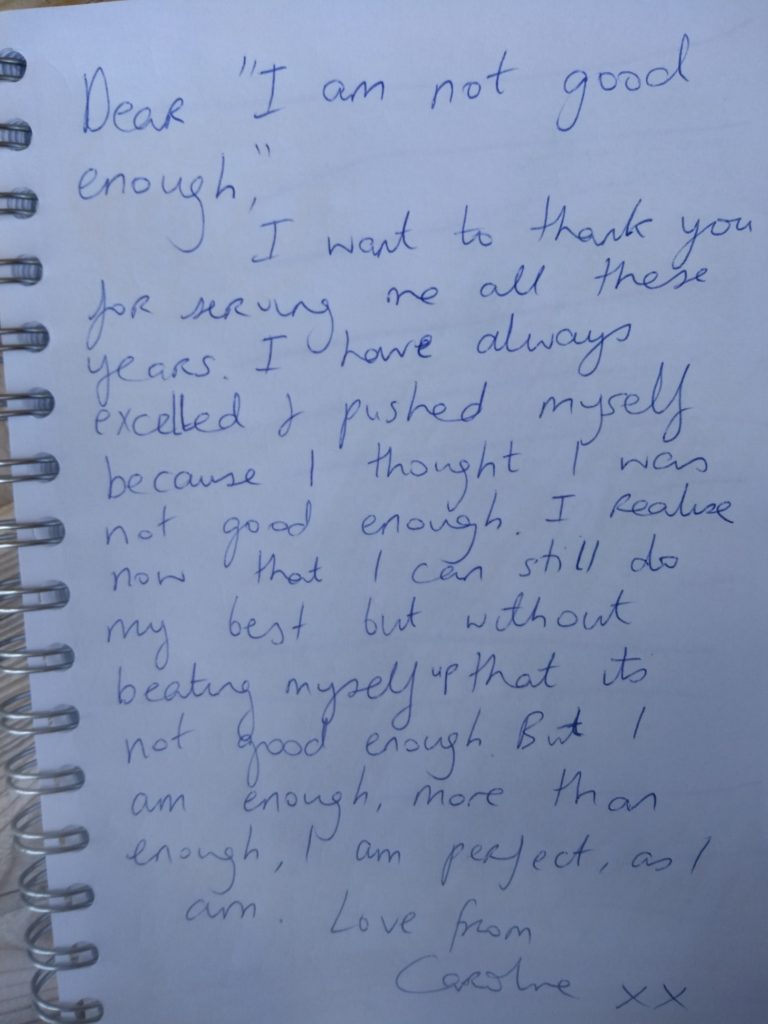 Dear "I am not good
enough,"
I want to thank you
for serving me all these
years. I have always
excelled & pushed myself
because I thought I was
not good enough. I realise
now that I can still do
my best but without
beating myself up that its
not good enough. But I
am enough, more than
enough, I am perfect, as I
am. Love from
Caroline xx